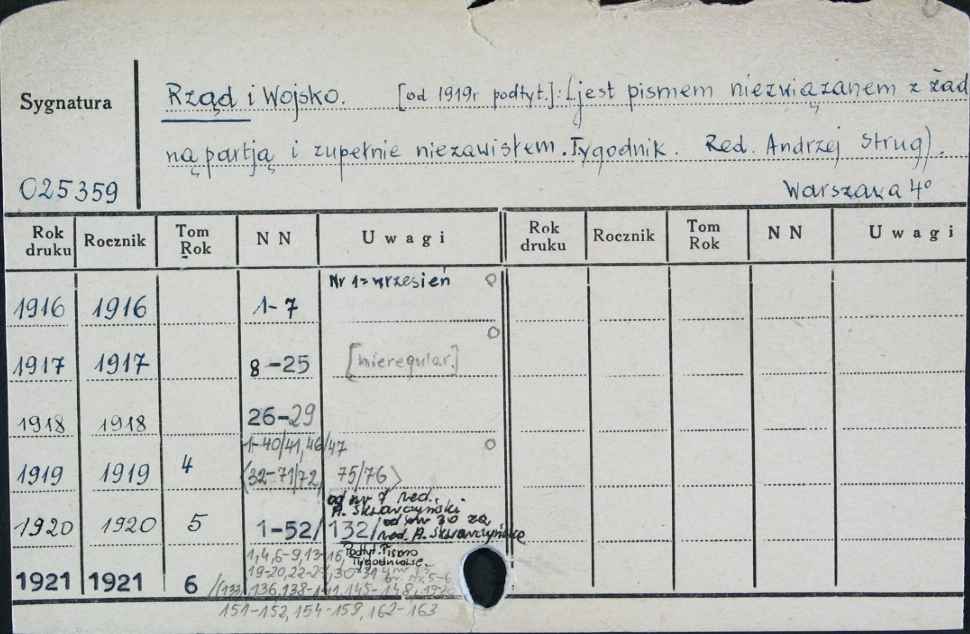 Sygnatura
Rząd i Wojsko. [od 1919r podtyt.]: (jest pismem niezwiązanem z żad
ną partją i zupełnie niezawisłem. Tygodnik. Red. Andrzej Strug).
025359
Warszawa 4°
Rok druku Rocznik Tom Rok N N Uwagi Rok druku Rocznik Tom Rok N N Uwagi
Nr 1 = wrzesień
1916 1916 1-7
1917 1917 8-25 [nieregular.]
1918 1918 26-29
1-40/41, 46/47
1919 1919 4 (32-71/72, 75/76)
od nr 7 red.
A. Skwarczyński
1920 1920 5 1-52/132/ od nr 30 za
red. A. Skwarczyński
Podtyt. Pismo
Tygodniowe.
1,4,6-9,13-16,
19-20,22-
1921 1921 6 136,138-141,145-148,
151-152, 154-159, 162-163